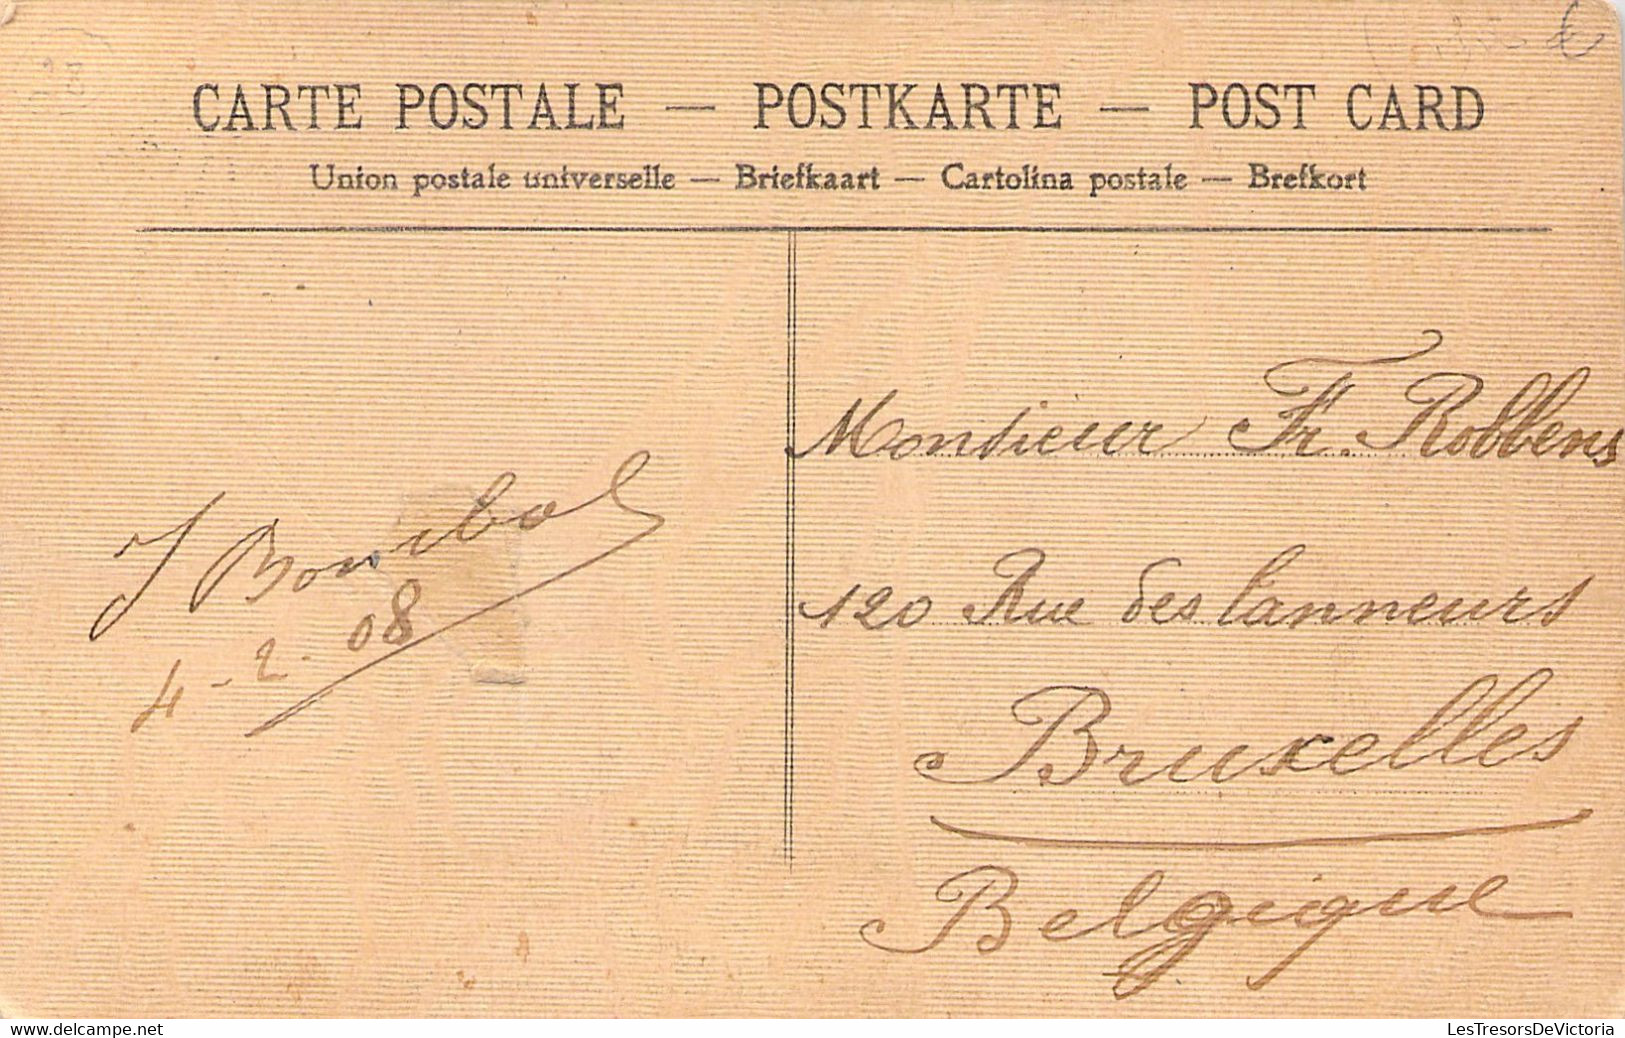 CARTE POSTALE — POSTKARTE — POST CARD
Union postale universelle — Briefkaart — Cartolina postale — Brefkort
Monsieur Fr. Robbens
120 Rue des Tanneurs
Bruxelles
Belgique
J
4-2-08
28
€
www.delcampe.net
LesTresorsDeVictoria